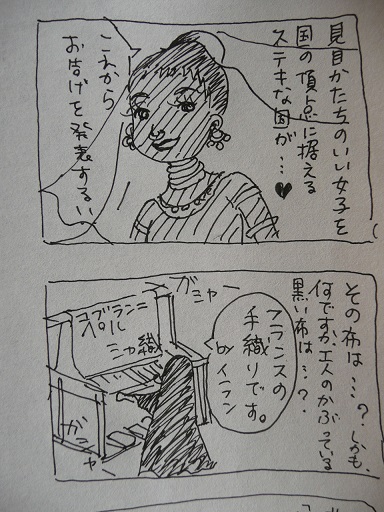 見目かたちのいい女子を
国の頂点に据える
ステキな国が…♥
これから
お告げを発表するい
その布は…？しかも、
何ですか、工人のかぶっている
黒い布は…？
フランスの
手織りです。
byイラン
ガシャー
コブラン=
パール
ニャ織
ガシャー